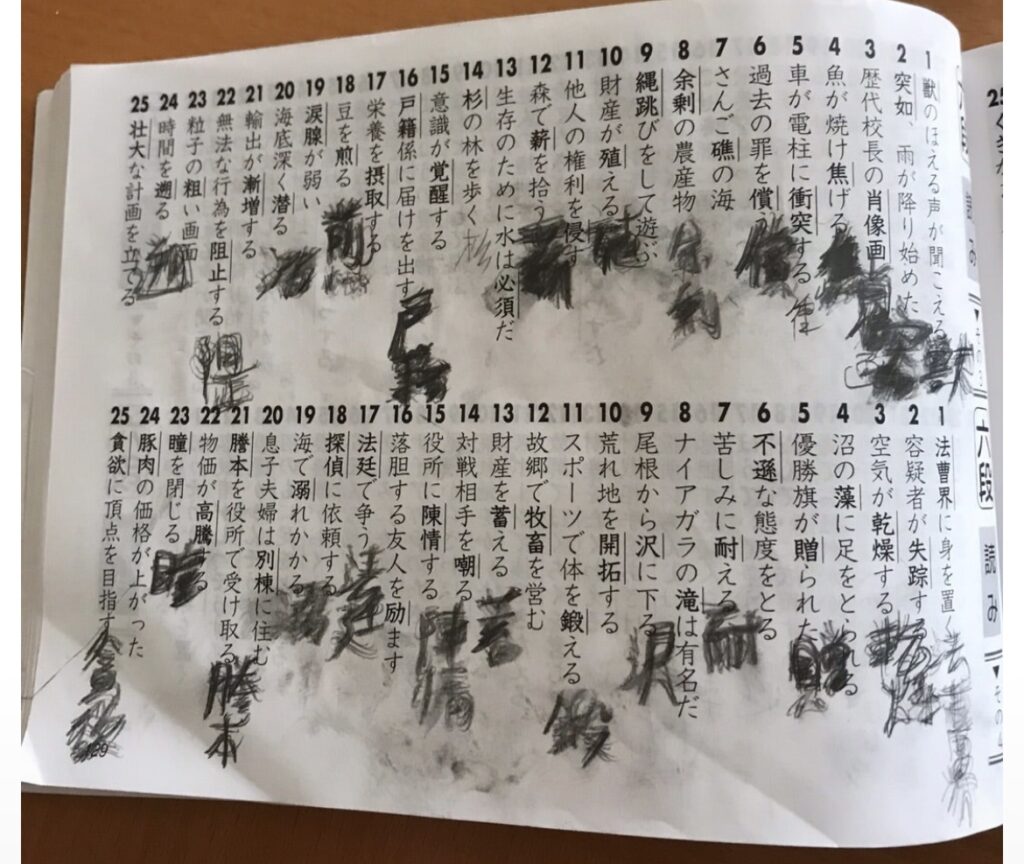 六段
読み
▼その
1 獣のほえる声が聞こえる
2 突如、雨が降り始めた
3 歴代校長の肖像画
4 魚が焼け焦げる
5 車が電柱に衝突する
6 過去の罪を償う
7 さんご礁の海
8 余剰の農産物
9 縄跳びをして遊ぶ
10 財産が殖える
11 他人の権利を侵す
12 森で薪を拾う
13 生存のために水は必須だ
14 杉の林を歩く
15 意識が覚醒する
16 戸籍係に届けを出す
17 栄養を摂取する
18 豆を煎る
19 涙腺が弱い
20 海底深く潜る
21 輸出が漸増する
22 無法な行為を阻止する
23 粒子の粗い画面
24 時間を遡る
25 壮大な計画を立てる
獣
突
焦
償
余剰
殖
薪
杉
戸籍
煎
潜
阻止
遡
六段
読み
▼その4
1 法曹界に身を置く
2 容疑者が失踪する
3 空気が乾燥する
4 沼の藻に足をとられる
5 優勝旗が贈られた
6 不遜な態度をとる
7 苦しみに耐える
8 ナイアガラの滝は有名だ
9 尾根から沢に下る
10 荒れ地を開拓する
11 スポーツで体を鍛える
12 故郷で牧畜を営む
13 財産を蓄える
14 対戦相手を嘲る
15 役所に陳情する
16 落胆する友人を励ます
17 法廷で争う
18 探偵に依頼する
19 海で溺れかかる
20 息子夫婦は別棟に住む
21 謄本を役所で受け取る
22 物価が高騰する
23 瞳を閉じる
24 豚肉の価格が上がった
25 貪欲に頂点を目指す
法
乾燥
贈
耐
沢
鍛
蓄
陳情
法廷
溺
謄本
瞳
貪欲
129